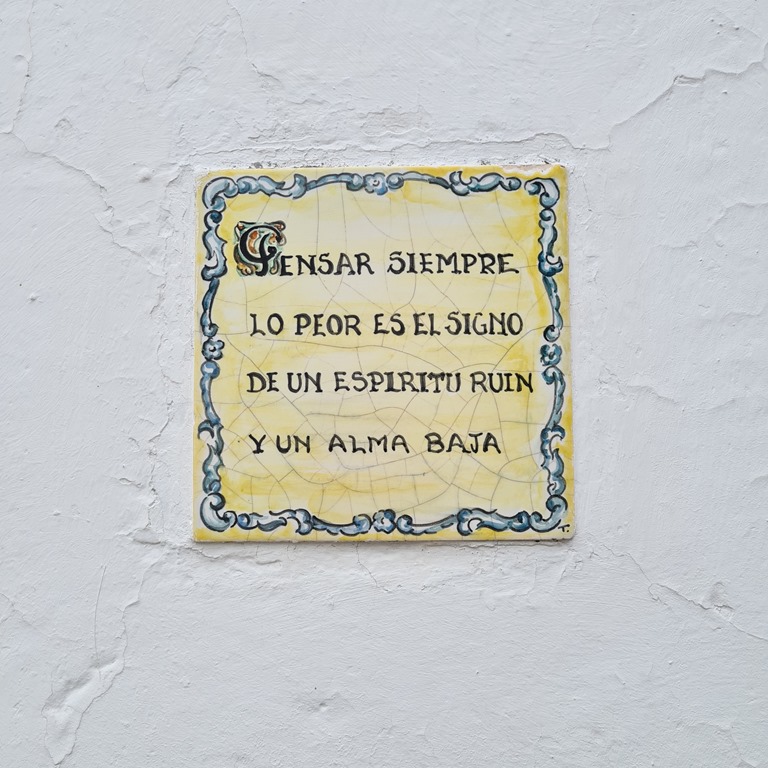 PENSAR SIEMPRE
LO PEOR ES EL SIGNO
DE UN ESPIRITU RUIN
Y UN ALMA BAJA
T.